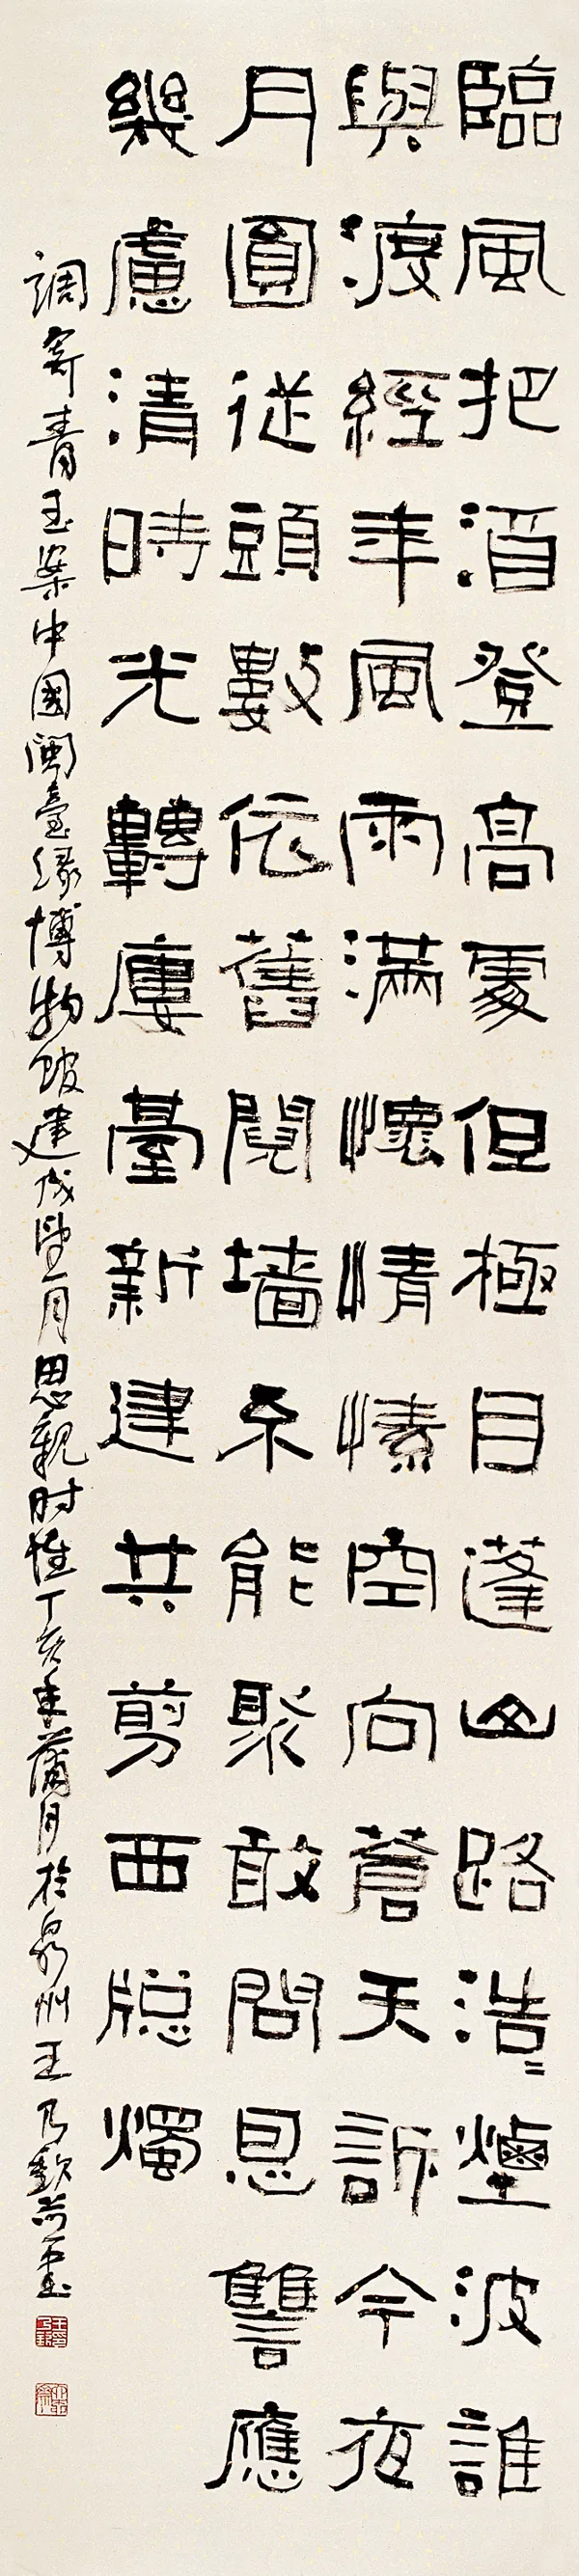 臨風把酒登高處但極目蓬山路浩〻煙波誰
與渡經年風雨滿懷情愫空向蒼天訴今夜
月圓従頭數依舊鬩墙亦能聚敢問恩讐應
幾慮清時光轉廔臺新建共剪西牕燭
調寄青玉案中國閩臺緣博物館建成望月思親时惟丁亥年蒲月於泉州王乃欽并書